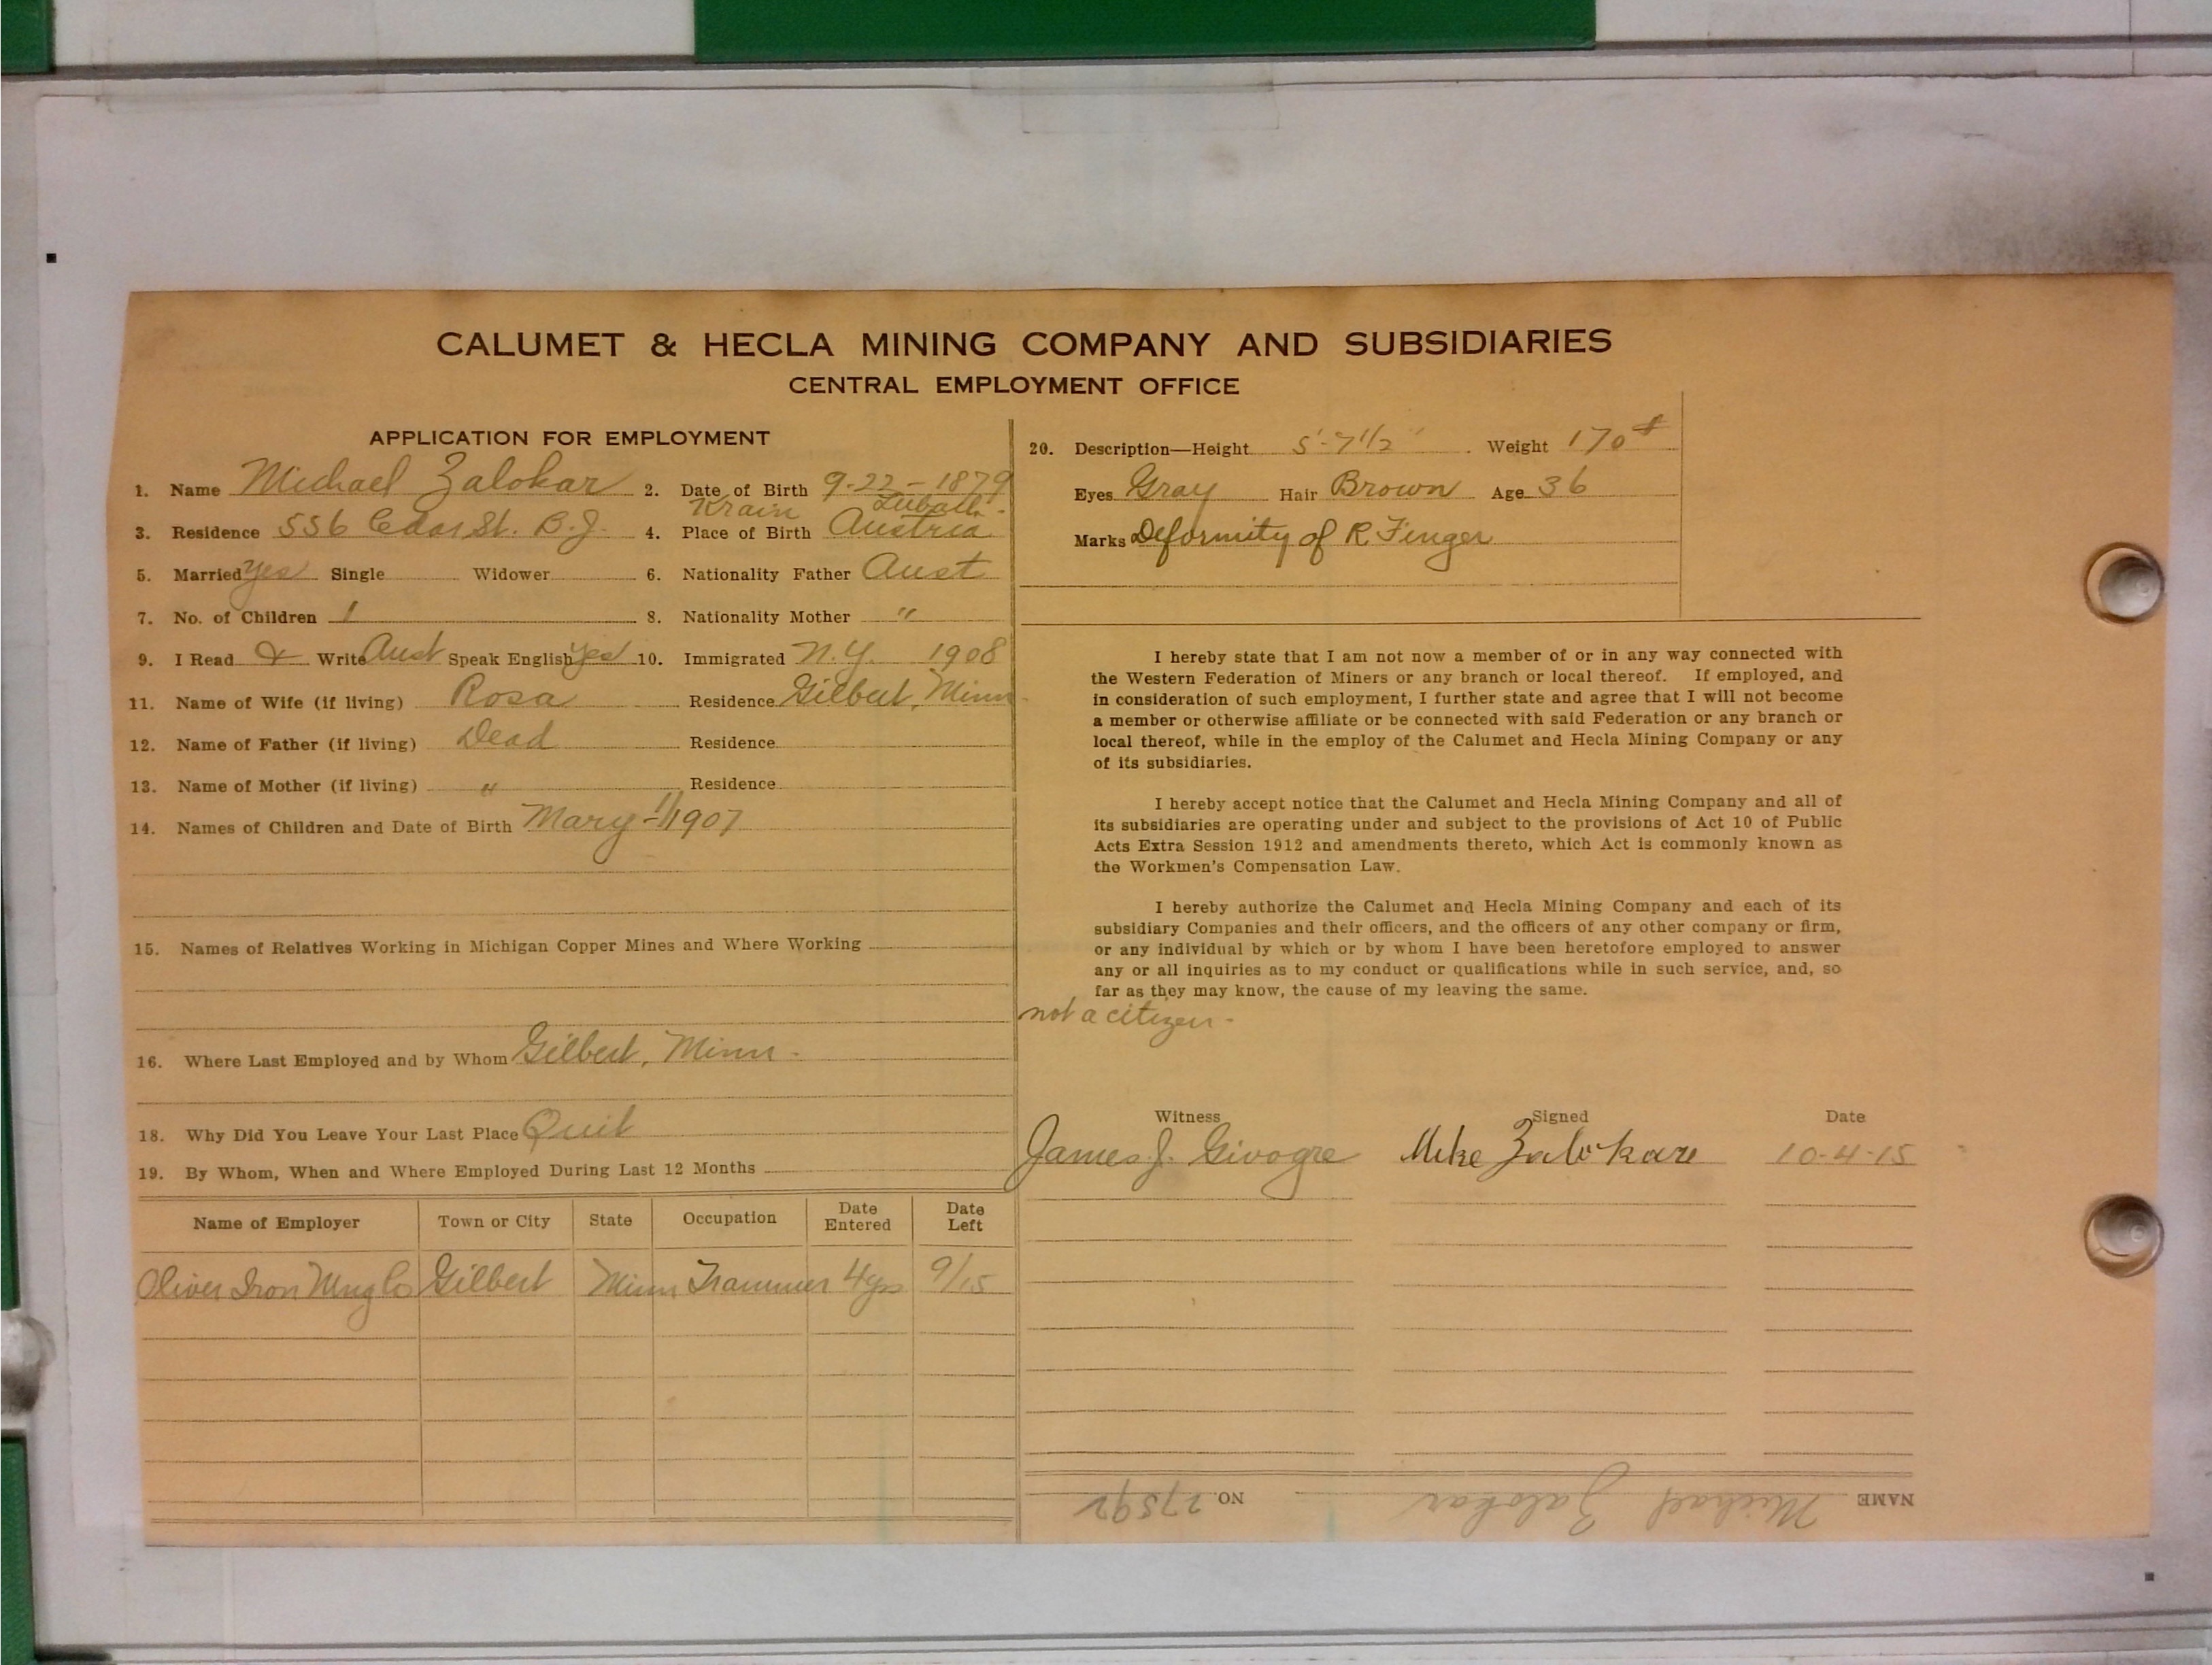 CALUMET & HECLA MINING COMPANY AND SUBSIDIARIES
CENTRAL EMPLOYMENT OFFICE
APPLICATION FOR EMPLOYMENT
1. Name Michael Zalokar 2. Date of Birth 9-22-1879
Krain
3. Residence 556 Cedar St. B.J. 4. Place of Birth Austria
5. Married yes Single Widower 6. Nationality Father Aust
7. No. of Children 1 8. Nationality Mother "
9. I Read & Write Aust Speak English yes 10. Immigrated N.Y. 1908
11. Name of Wife (if living) Rosa Residence Gilbert, Minn
12. Name of Father (if living) Dead Residence
13. Name of Mother (if living) " Residence
14. Names of Children and Date of Birth Mary - 1/1907
15. Names of Relatives Working in Michigan Copper Mines and Where Working
16. Where Last Employed and by Whom Gilbert, Minn.
18. Why Did You Leave Your Last Place Quit
19. By Whom, When and Where Employed During Last 12 Months
Name of Employer Town or City State Occupation Date Entered Date Left
Oliver Iron Mng Co Gilbert Minn Trammer 4yrs 9/15
20. Description—Height 5'-7 1/2" Weight 170#
Eyes Gray Hair Brown Age 36
Marks Deformity of R Finger
I hereby state that I am not now a member of or in any way connected with
the Western Federation of Miners or any branch or local thereof. If employed, and
in consideration of such employment, I further state and agree that I will not become
a member or otherwise affiliate or be connected with said Federation or any branch or
local thereof, while in the employ of the Calumet and Hecla Mining Company or any
of its subsidiaries.
I hereby accept notice that the Calumet and Hecla Mining Company and all of
its subsidiaries are operating under and subject to the provisions of Act 10 of Public
Acts Extra Session 1912 and amendments thereto, which Act is commonly known as
the Workmen's Compensation Law.
I hereby authorize the Calumet and Hecla Mining Company and each of its
subsidiary Companies and their officers, and the officers of any other company or firm,
or any individual by which or by whom I have been heretofore employed to answer
any or all inquiries as to my conduct or qualifications while in such service, and, so
far as they may know, the cause of my leaving the same.
not a citizen -
Witness Signed Date
James J. Givogre Mike Zalokare 10-4-15
NAME Michael Zalokar NO. 27592